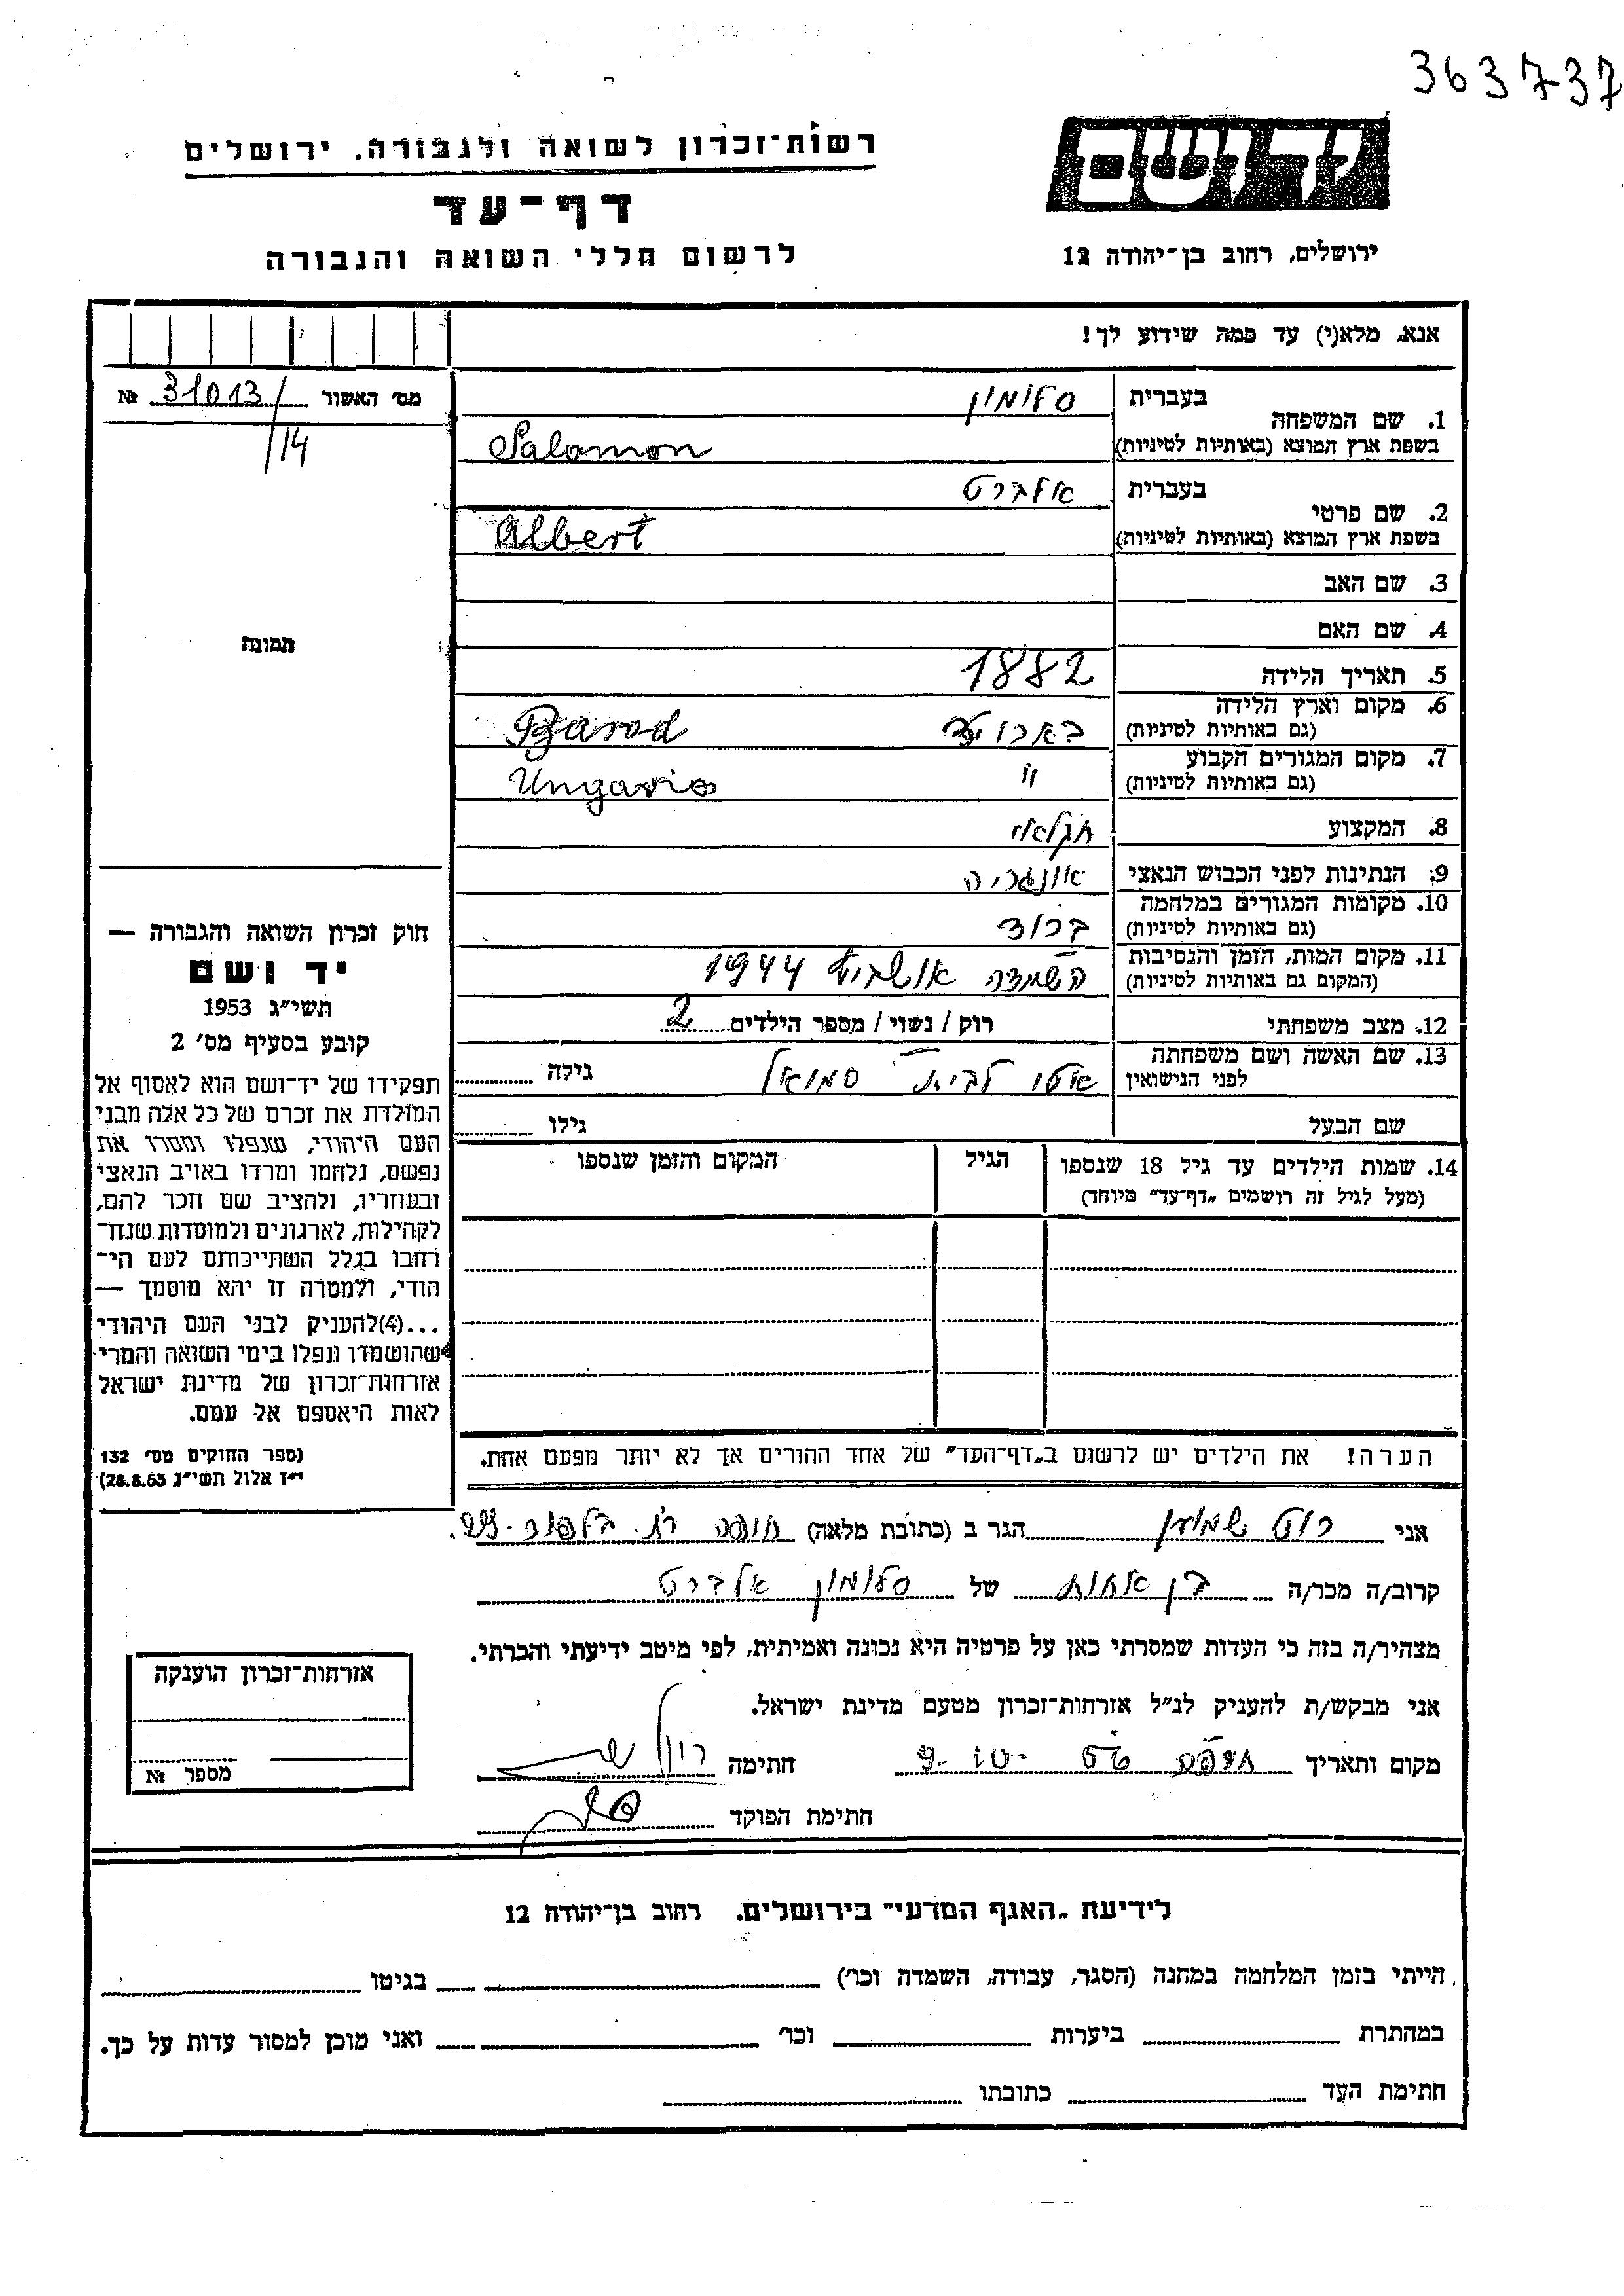 363737
רשות־זכרון לשואה ולגבורה, ירושלים
יד ושם
דף־עד
לרשום חללי השואה והגבורה
ירושלים, רחוב בן־יהודה 12
אנא, מלא(י) עד כמה שידוע לך!
מס׳ האשור 31013/ №
/14
1. שם המשפחה
בעברית סלומון
בשפת ארץ המוצא (באותיות לטיניות) Salamon
2. שם פרטי
בעברית אלברט
בשפת ארץ המוצא (באותיות לטיניות) Albert
3. שם האב
4. שם האם
תמונה
5. תאריך הלידה 1882
6. מקום וארץ הלידה
(גם באותיות לטיניות) Barod
7. מקום המגורים הקבוע
(גם באותיות לטיניות) " Ungaria
8. המקצוע חקלאי
9. הנתינות לפני הכבוש הנאצי אונגריה
10. מקומות המגורים במלחמה
(גם באותיות לטיניות) ברוד
11. מקום המות, הזמן והנסיבות
(המקום גם באותיות לטיניות) השמדה אושביץ 1944
12. מצב משפחתי רוק / נשוי / מספר הילדים 2
13. שם האשה ושם משפחתה
לפני הנישואין לבית סמואל גילה
שם הבעל גילו
14. שמות הילדים עד גיל 18 שנספו הגיל המקום והזמן שנספו
(מעל לגיל זה רושמים „דף־עד״ מיוחד)
הערה! את הילדים יש לרשום ב„דף־העד״ של אחד ההורים אך לא יותר מפעם אחת.
חוק זכרון השואה והגבורה —
יד ושם
תשי״ג 1953
קובע בסעיף מס׳ 2
תפקידו של יד־ושם הוא לאסוף אל
המולדת את זכרם של כל אלה מבני
העם היהודי, שנפלו ומסרו את
נפשם, נלחמו ומרדו באויב הנאצי
ובעוזריו, ולהציב שם וזכר להם,
לקהילות, לארגונים ולמוסדות שנח־
רחבו בגלל השתייכותם לעם הי־
הודי, ולמטרה זו יהא מוסמך —
...(4)להעניק לבני העם היהודי
שהושמדו ונפלו בימי השואה והמרי
אזרחות־זכרון של מדינת ישראל
לאות היאספם אל עמם.
(ספר החוקים מס׳ 132
י״ז אלול תשי״ג 28.8.53)
אני רוט שמעון הגר ב (כתובת מלאה) חיפה רח. בלפור
קרוב/ה מכר/ה בן אחות של סלומון אלברט
מצהיר/ה בזה כי העדות שמסרתי כאן על פרטיה היא נכונה ואמיתית, לפי מיטב ידיעתי והכרתי.
אני מבקש/ת להעניק לנ״ל אזרחות־זכרון מטעם מדינת ישראל.
מקום ותאריך חתימה
חתימת הפוקד
אזרחות־זכרון הוענקה
מספר №
לידיעת „האגף המדעי״ בירושלים, רחוב בן־יהודה 12
הייתי בזמן המלחמה במחנה (הסגר, עבודה, השמדה וכו׳) בגיטו
במחתרת ביערות וכו׳ ואני מוכן למסור עדות על כך.
חתימת העד כתובתו